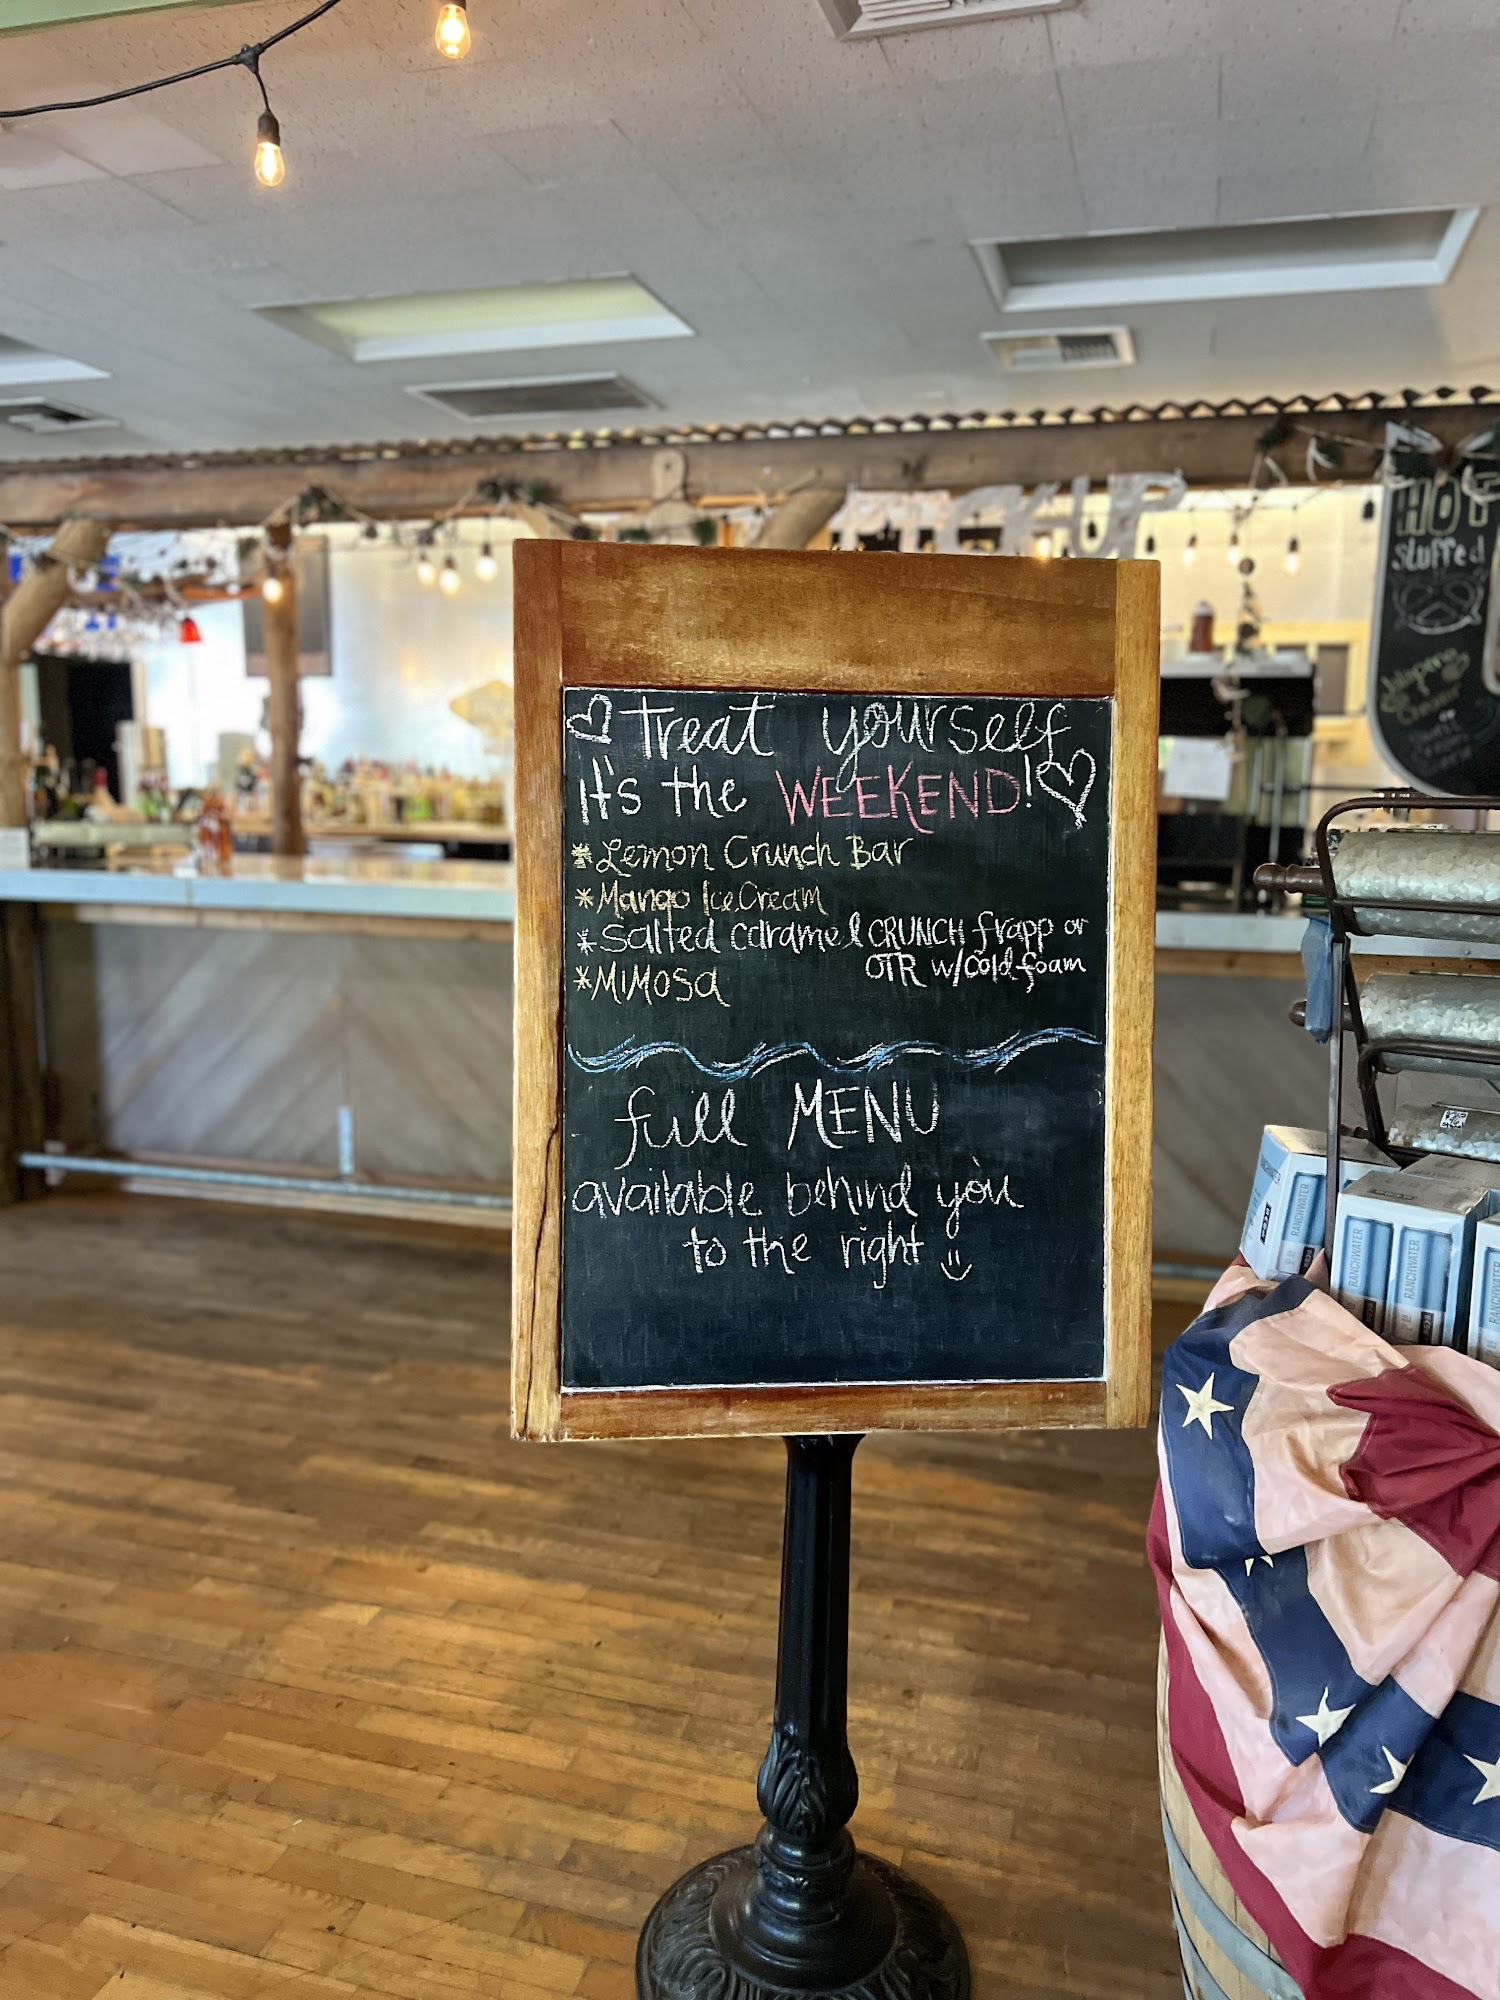 PICK-UP
HOT
Stuffed
Jalapeno
Treat yourself
It's the WEEKEND!
*Lemon Crunch Bar
*Mango Ice Cream
*Salted caramel CRUNCH frapp or
OTR w/cold foam
*MiMOSA
full MENU
available behind you
to the right
RANCHWATER
RANCHWATER
RANCHWATER
RANCHWATER